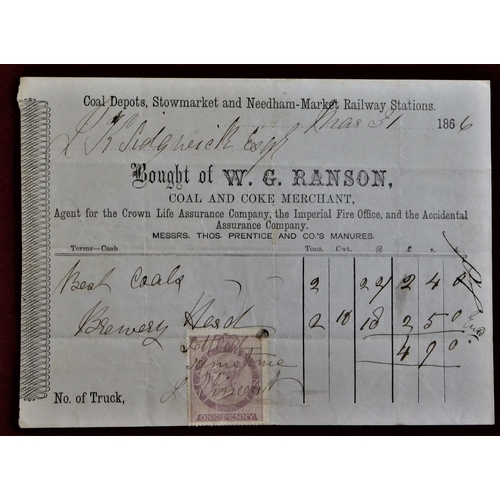 Coal Depots, Stowmarket and Needham-Market Railway Stations.
Mar 31 1866
Sidgwick Esq
Bought of W. G. RANSON,
COAL AND COKE MERCHANT,
Agent for the Crown Life Assurance Company, the Imperial Fire Office, and the Accidental
Assurance Company.
MESSRS. THOS. PRENTICE AND CO.'S MANURES.
Terms—Cash Tons. Cwt. @ £ s. d.
Best Coals 2 22/ 2 4 0
Brewery Hard 2 10 18 2 5 0
4 9 0
same time
J Vincent
ONE PENNY
No. of Truck,